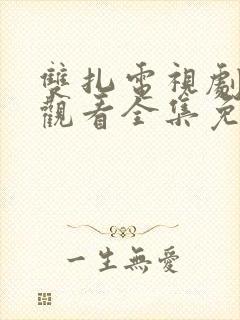 雙扎電視劇
觀看全集免
一生無愛